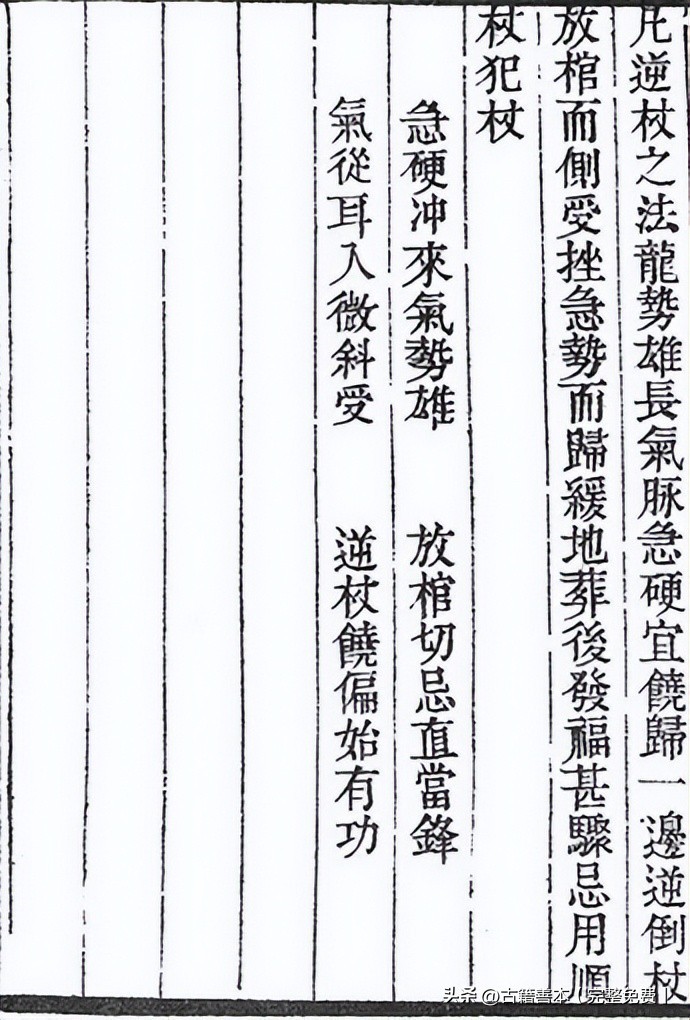 凡逆杖之法龍勢雄長氣脉急硬宜饒歸一邊逆倒杖
放棺而側受挫急勢而歸緩地葬後發福甚驟忌用順
杖犯杖
急硬冲來氣勢雄　放棺切忌直當鋒
氣從耳入微斜受　逆杖饒偏始有功
头条 @古籍善本（完整免费）